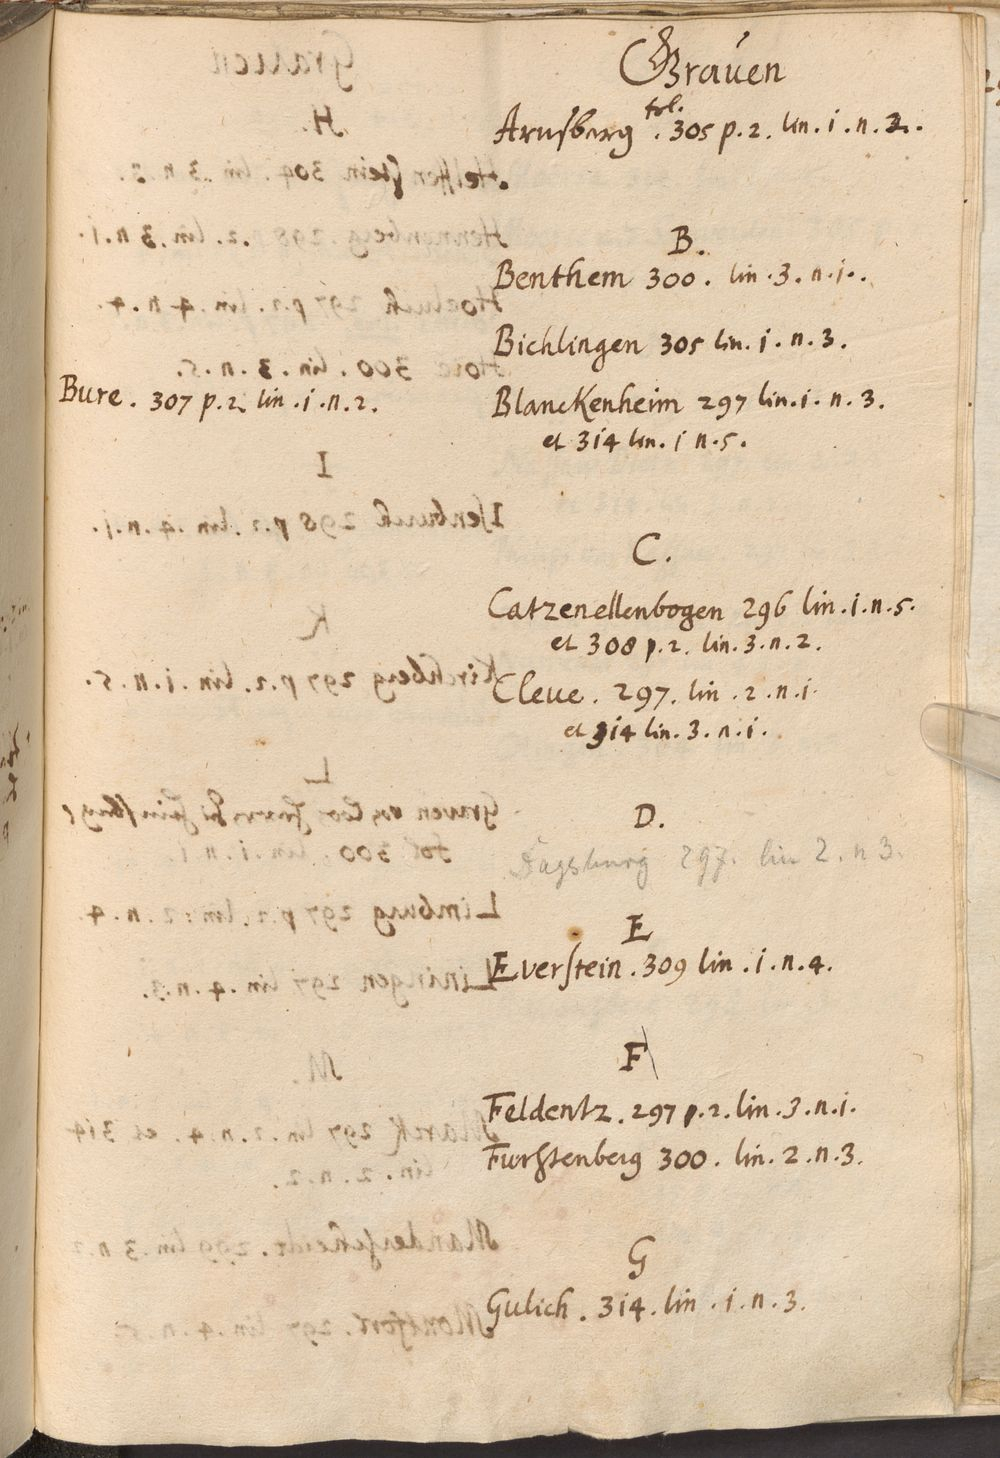 Graüen
Arnsberg fol. 305 p. 2. lin. i. n. 2.
B.
Benthem 300. lin. 3. n. i.
Bichlingen 305 lin. i. n. 3.
Bure. 307 p. 2. lin. i. n. 2.
Blanckenheim 297 lin. i. n. 3.
et 3i4 lin. i n. 5.
C.
Catzenellenbogen 296 lin. i. n. 5.
et 308 p. 2. lin. 3. n. 2.
Cleue. 297. lin. 2. n. i
et 3i4 lin. 3. n. i.
D.
Dagsburg 297. lin 2. n 3.
E
Everstein. 309 lin. i. n. 4.
F
Feldentz. 297 p. 2. lin. 3. n. i.
Furstenberg 300. lin. 2. n. 3.
G
Gulich. 3i4. lin. i. n. 3.